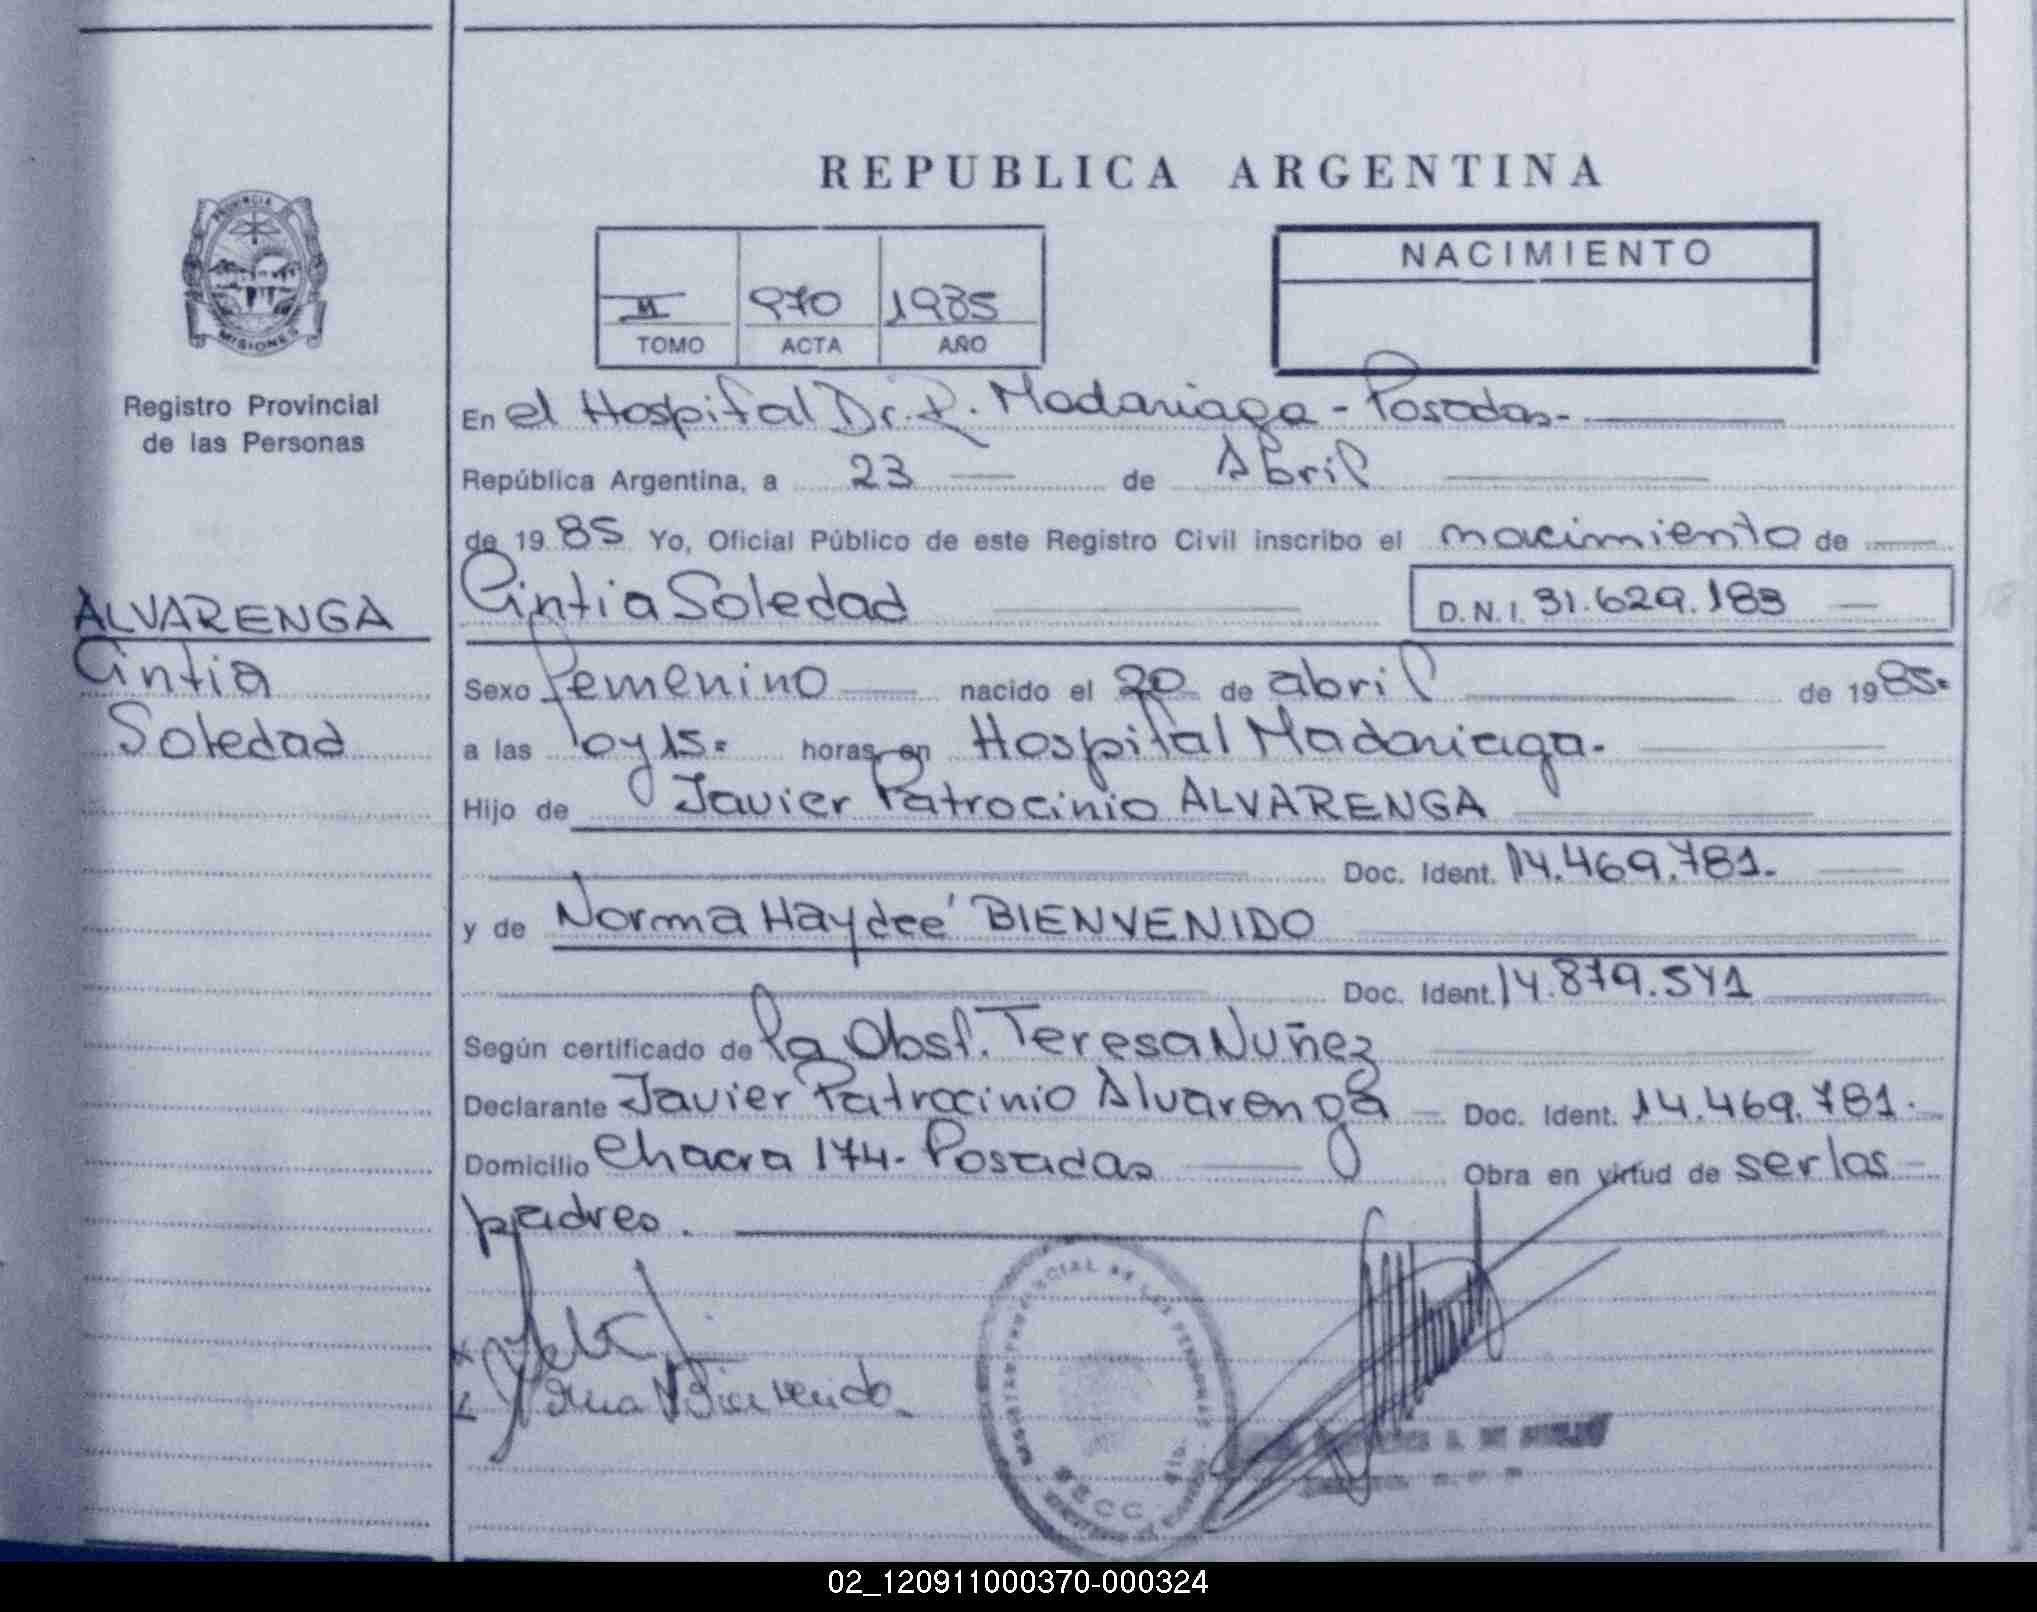 REPUBLICA ARGENTINA
PROVINCIA
MISIONES
NACIMIENTO
II 970 1985
TOMO ACTA AÑO
Registro Provincial
de las Personas
En el Hospital Dr. R. Madariaga - Posadas-
República Argentina, a 23 de Abril
de 1985 Yo, Oficial Público de este Registro Civil inscribo el nacimiento de
ALVARENGA
Cintia
Soledad
Cintia Soledad D.N.I. 31.629.183
Sexo femenino nacido el 20 de abril de 1985-
a las 10 y 15= horas en Hospital Madariaga.
Hijo de Javier Patrocinio ALVARENGA
Doc. Ident. 14.469.781.
y de Norma Haydeé BIENVENIDO
Doc. Ident. 14.879.541
Según certificado de la Obst. Teresa Nuñez
Declarante Javier Patrocinio Alvarenga Doc. Ident. 14.469.781.
Domicilio Chacra 174- Posadas Obra en virtud de ser los
padres.
Bienvenido
02_120911000370-000324